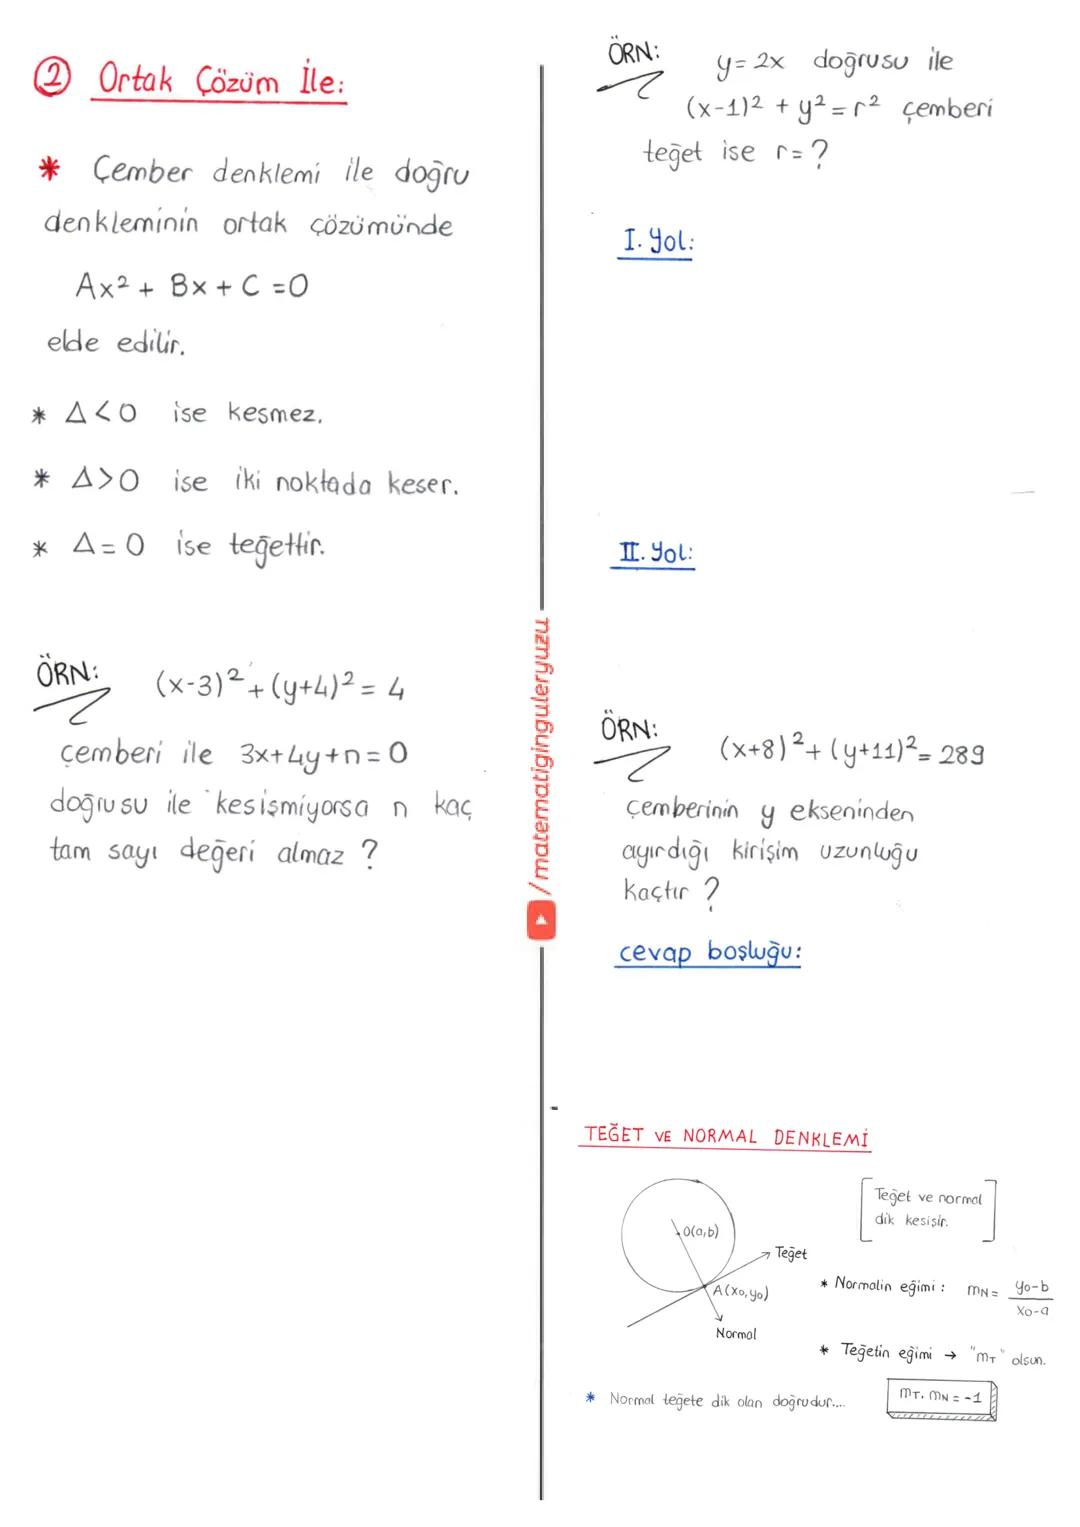 ② Ortak Çözüm İle:
* Çember denklemi ile doğru
denkleminin ortak çözümünde
Ax² + Bx + C = 0
elde edilir.
* Δ<0 ise kesmez.
* Δ>0 ise iki noktada keser.
* Δ=0 ise teğettir.
ÖRN: (x-3)² + (y+4)² = 4
çemberi ile 3x+4y+n=0
doğrusu ile kesişmiyorsa n kaç
tam sayı değeri almaz ?
/matematiginguleryuzu
ÖRN: y=2x doğrusu ile
(x-1)² + y² = r² çemberi
teğet ise r=?
I. Yol:
II. Yol:
ÖRN: (x+8)² + (y+11)² = 289
çemberinin y ekseninden
ayırdığı kirişim uzunluğu
kaçtır ?
cevap boşluğu:
TEĞET VE NORMAL DENKLEMİ
Teğet ve normal
dik kesişir.
O(a,b)
Teğet
A(x₀,y₀)
Normal
* Normalin eğimi : mN = y₀-b / x₀-a
* Teğetin eğimi → "mT" olsun.
* Normal teğete dik olan doğrudur....
mT. mN = -1